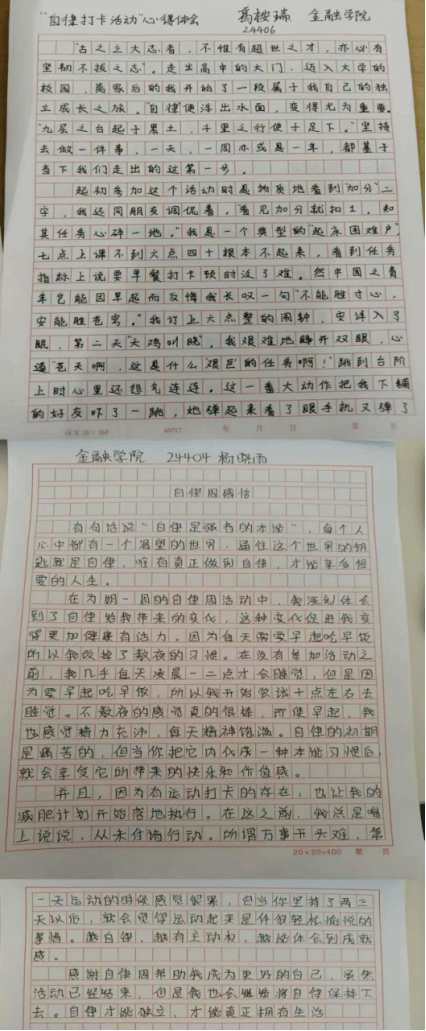 "自律打卡活动"心得体会 金融学院
24406
"古之立大志者,不惟有超世之才,亦必有
坚韧不拔之志"。走出高中的大门,迈入大学的
校园,离家后的我开始了一段属于我自己的独
立成长之旅。"自律"便浮出水面,变得尤为重要。
"九层之台起于累土,千里之行便于足下。"坚持
去做一件事,一天,一周亦或是一年,都基于
当下我们走出的这第一步。
起初参加这个活动时是物质地看到"加分"二
字,我还同朋友调侃着,"看见加分就扣1,知
其任务心碎一地。"我是一个典型的"起床困难户"
七点上课不到六点四十根本不起来,看到任务
指标上说要早餐打卡顿时泛了难。然
年岂能因早起而反悔我长叹一句"不能胜寸心,
安能胜苍穹。"我订上六点整的闹钟,安详入了
眠,第二天"大鸡叫晓",我艰难地睁开双眼,心
道"苍天啊,这是什么艰巨的任务啊!"跳到台阶
上时心里还怨气连连。这一番大动作把我下铺
的好友吓了一跳,她弹起来看了眼手机又弹了
年 月 日
金融学院 24404 杨
自律周感悟
有句话说"自律是强者的本能",每个人
心中都有一个渴望的世界,
就是自律,唯有真正做到自律,才能
要的人生。
在为期一周的自律周活动中,我深刻体会
到了自律给我带来的变化,这种变化促进我变
得更加健康有活力。因为每天需要早起吃早饭
所以我改掉了熬夜的习惯。在没有参加活动之
前,我几乎每天凌晨一二点才会睡觉,但是因
为要早起吃早饭,所以我开始尝试十点左右去
睡觉。不熬夜的感觉真的很棒,即使早起,我
也感觉精力充沛,每天精神饱满。自律的初期
是痛苦的,但当你把它内化成一种本能习惯后,
就会享受它所带来的快乐和价值感。
并且,因为有运动打卡的存在,也让我的
减肥计划开始落地执行。在这之前,我总是嘴
上说说,从未付诸行动。所谓万事开头难,第
20×20=400 第 页
一天运动的时候感觉很累,但当你坚持了两三
天以后,就会觉得运动起来是件很轻松愉悦的
事情。越自律,越有主动权,越能体会到成就
感。
感谢自律周帮助我成为更好的自己,虽然
活动已经结束,但是我也会继续将自律保持下
去。自律才能独立,才能真正拥有生活